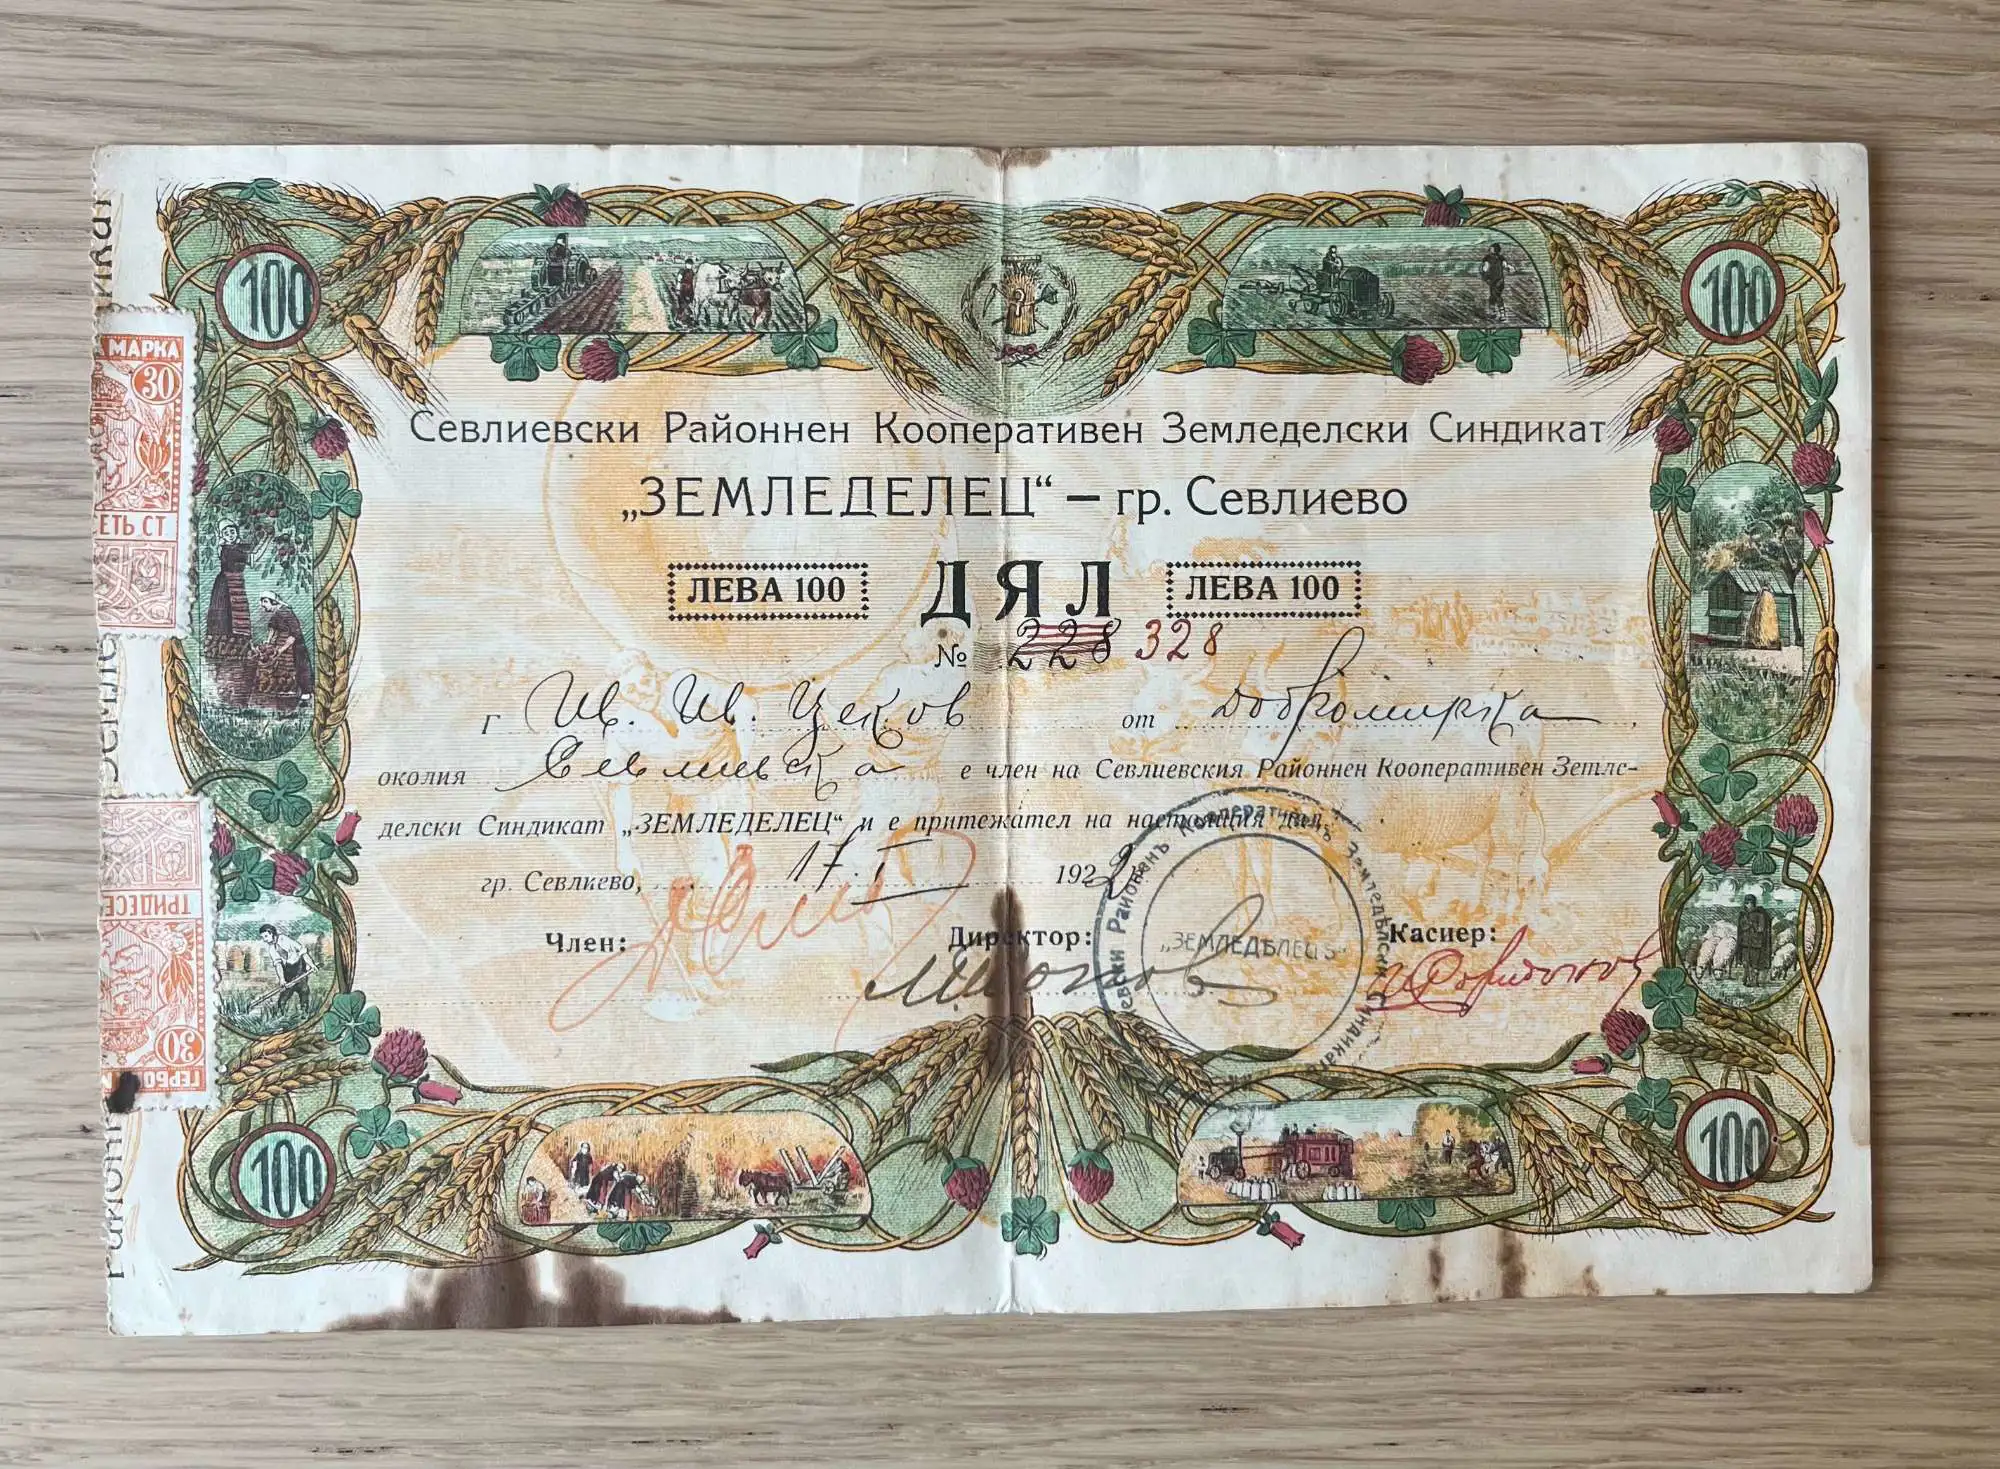 100
100
Севлиевски Районнен Кооперативен Земледелски Синдикат
„ЗЕМЛЕДЕЛЕЦ“ – гр. Севлиево
ЛЕВА 100 ДЯЛ ЛЕВА 100
№ 228 328
г Ив. Ив. Цеков от Добромирка,
околия Севлиевска е член на Севлиевския Районнен Кооперативен Земле-
делски Синдикат „ЗЕМЛЕДЕЛЕЦ“ и е притежател на настоящия дял.
гр. Севлиево, 17. V 192
Член: Директор: Касиер:
евски Районенъ Кооперативенъ Земледѣлски Синдикатъ
„ЗЕМЛЕДѢЛЕЦЪ“
100
100
МАРКА
30
ЕТЬ СТ
ТРИДЕСЕ
30
ГЕРБО